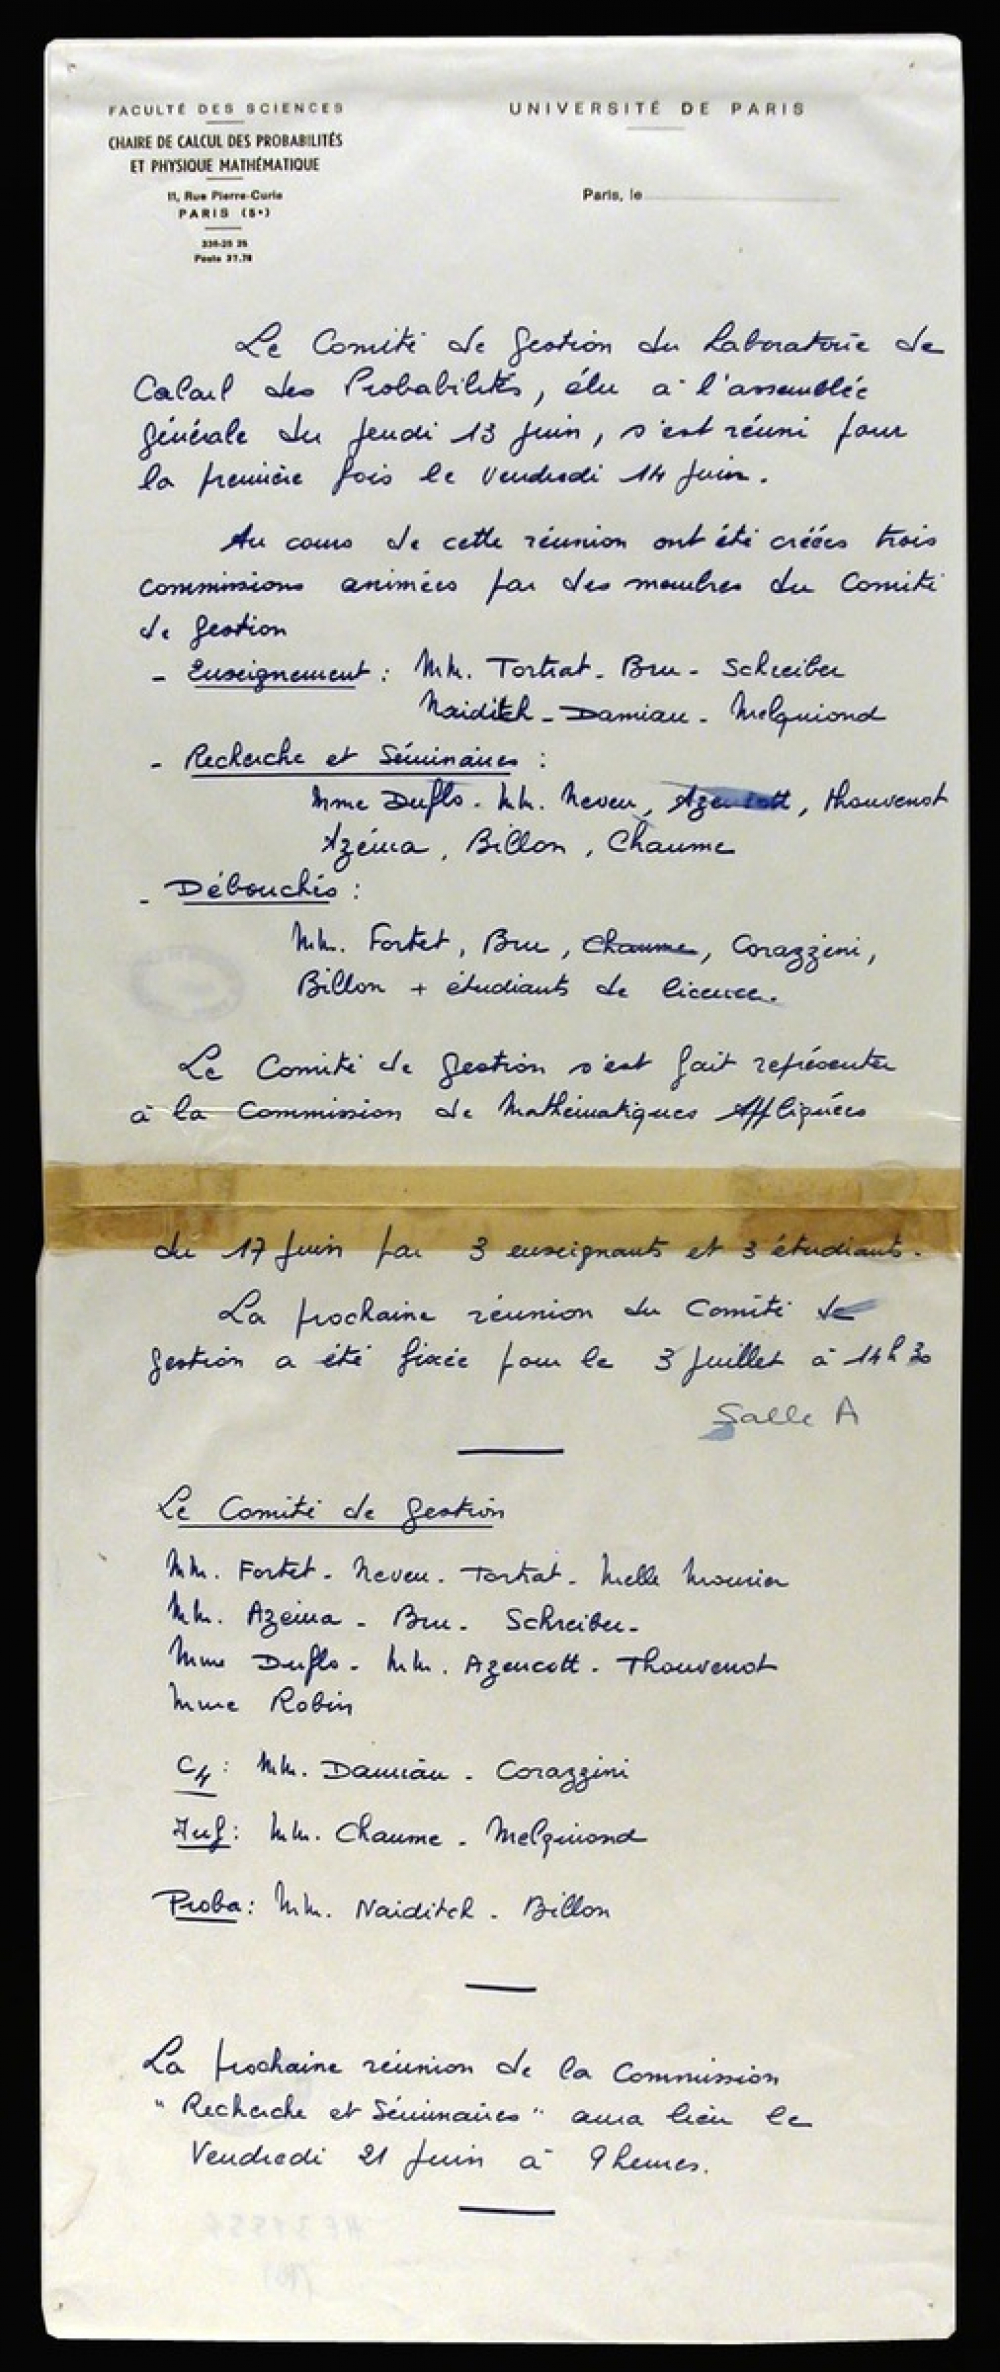 FACULTÉ DES SCIENCES
CHAIRE DE CALCUL DES PROBABILITÉS
ET PHYSIQUE MATHÉMATIQUE
11, Rue Pierre-Curie
PARIS (5e)
Poste 37.78
UNIVERSITÉ DE PARIS
Paris, le
Le Comité de Gestion du Laboratoire de
Calcul des Probabilités, élu à l'assemblée
générale du jeudi 13 juin, s'est réuni pour
la première fois le vendredi 14 juin.
Au cours de cette réunion ont été créées trois
commissions animées par des membres du Comité
de Gestion
- Enseignement : MM. Tortrat - Bru - Schreiber
Naiditch - Damian - Melquiond
- Recherche et Séminaires :
Mme Duflo - MM. Neveu, Azencott, Thouvenot
Azéma, Billon, Chaume
- Débouchés :
MM. Fortet, Bru, Chaume, Corazzini,
Billon + étudiants de licence.
Le Comité de Gestion s'est fait représenter
à la Commission de Mathématiques Appliquées
du 17 juin par 3 enseignants et 3 étudiants.
La prochaine réunion du Comité de
Gestion a été fixée pour le 3 juillet à 14h30
Salle A
Le Comité de Gestion
MM. Fortet - Neveu - Tortrat - Melle Mourier
MM. Azéma - Bru - Schreiber -
Mme Duflo - MM. Azencott - Thouvenot
Mme Robin
C4 : MM. Damian - Corazzini
Inf : MM. Chaume - Melquiond
Proba : MM. Naiditch - Billon
La prochaine réunion de la Commission
"Recherche et Séminaires" aura lieu le
Vendredi 21 juin à 9 heures.